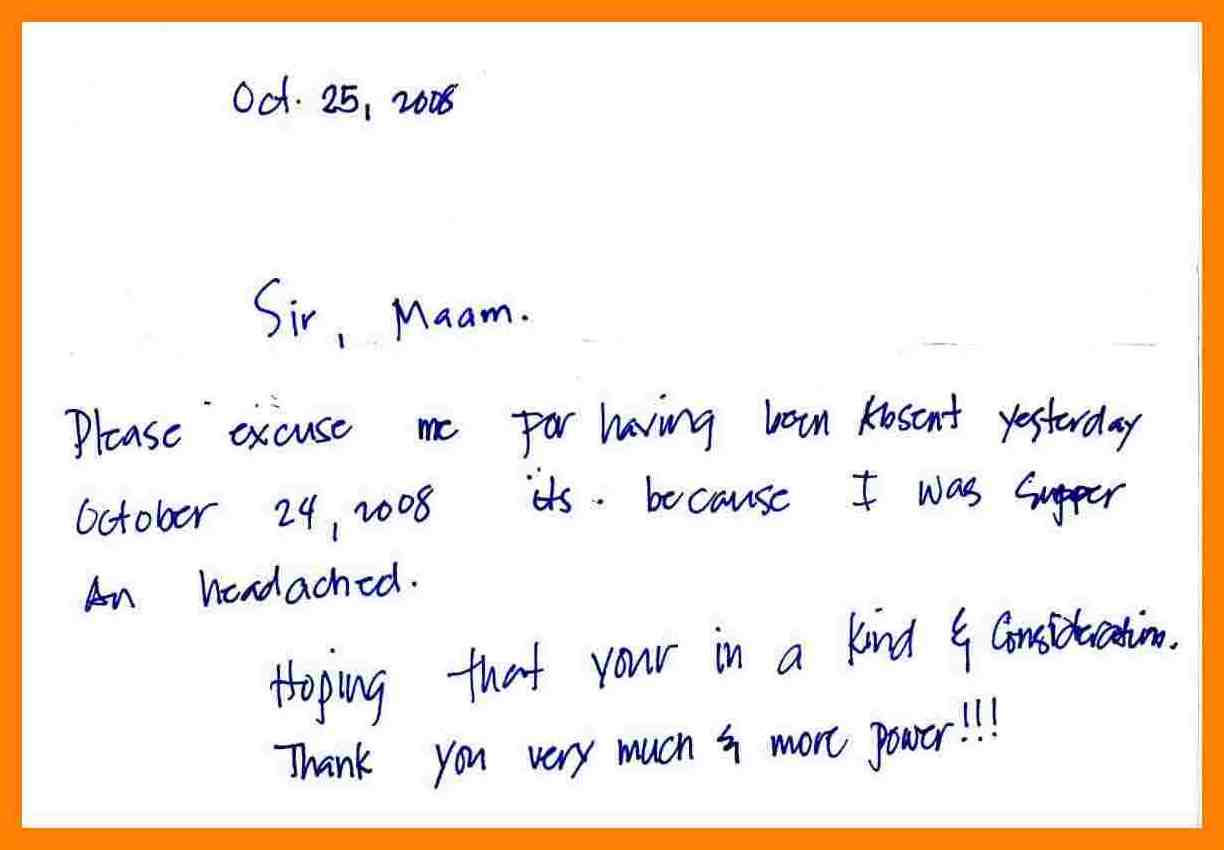 Oct. 25, 2008
Sir, Maam.
Please excuse me por having been Absent yesterday
October 24, 2008 its. because I was supper
An headached.
Hoping that your in a kind & Consideration.
Thank you very much & more power!!!